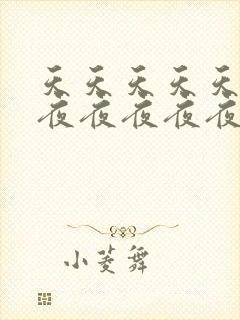 天天天天天
夜夜夜夜夜
小菱舞